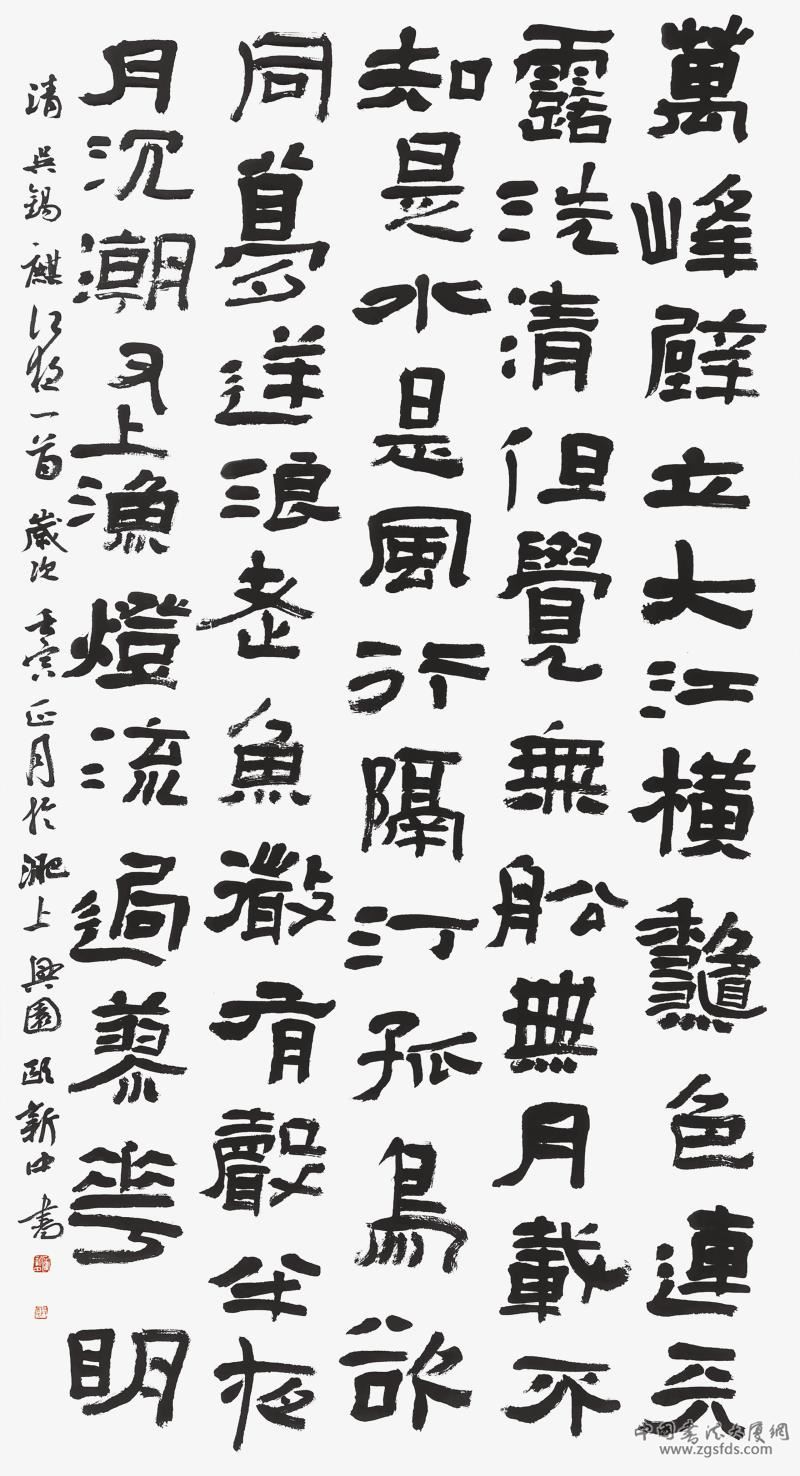 萬峰壁立大江橫龝色連天
露洗清但覺無舩無月載不
知是水是風行隔汀孤鳥欲
同夢迸浪老魚微有聲半夜
月沉潮又上漁燈流過蓼花明
清吳錫麒江夜一首歲次壬寅正月於淝上興園歐新中書
中国书法大厦網
www.zgsfds.com